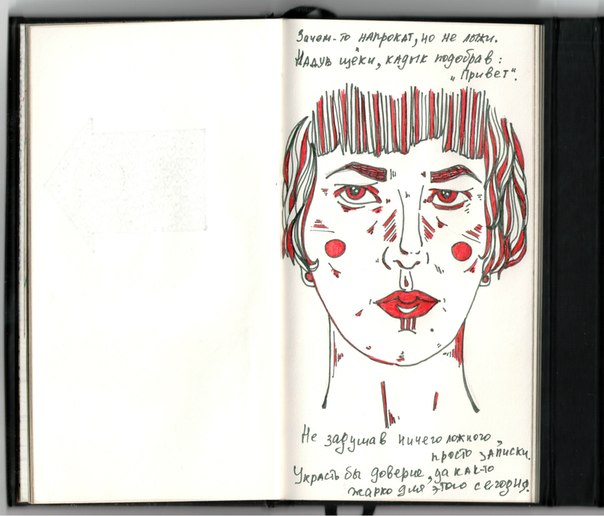 Зачем-то напрокат, но не лыжи.
Надув щёки, кадык подобрав:
„Привет".
Не задушав ничего ложного,
просто записки.
Украсть бы доверие, да как-то
жарко для этого сегодня.